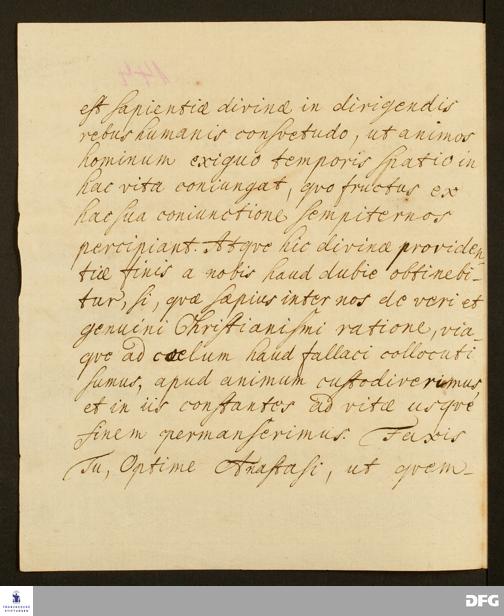 est sapientiæ divinæ in dirigendis
rebus humanis consvetudo, ut animos
hominum exiguo temporis spatio in
hac vita coniungat, qvo fructus ex
hac sua coniunctione sempiternos
percipiant. Atqve hic divinæ providen-
tiæ finis a nobis haud dubie obtinebi-
tur, si, qvæ sæpius inter nos de veri et
genuini Christianismi ratione, via-
qve ad cœlum haud fallaci collocuti
sumus, apud animum custodiverimus,
et in iis constantes ad vitæ usqve
finem permanserimus. Faxis
Tu, Optime Anastasi, ut qvem-
FRANCKESCHE
STIFTUNGEN
DFG